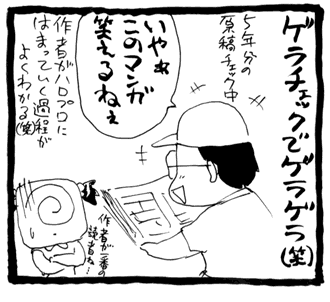 ゲラチェックでゲラゲラ(笑)
5年分の
原稿チェック中
いやぁ
このマンガ
笑えるねぇ
作者がハロプロに
はまっていく過程が
よくわかる(笑)
作者が一番の
読者ね…